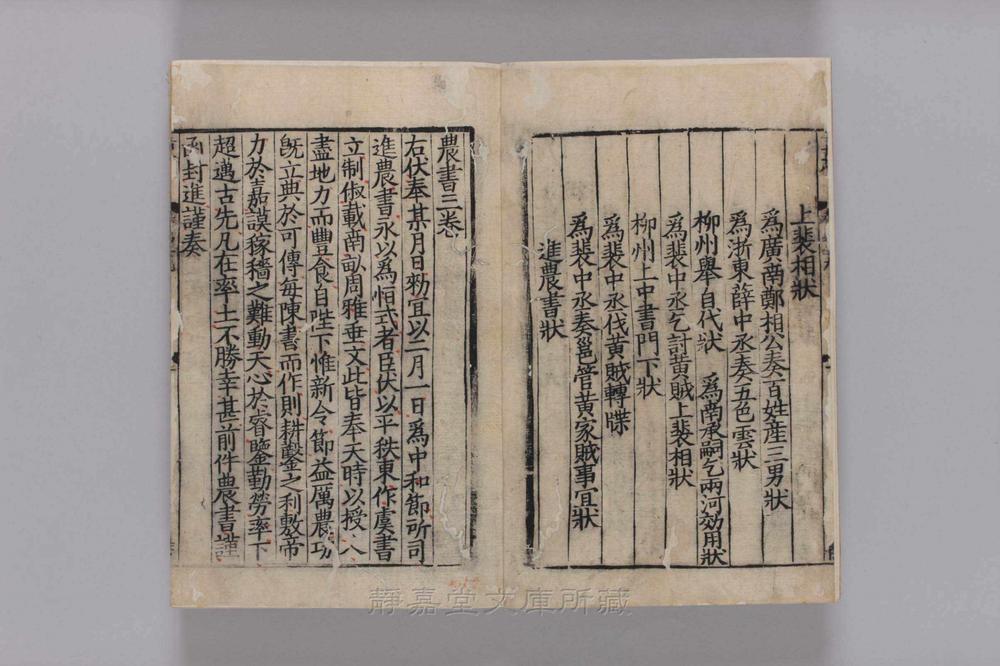 上裴相狀
爲廣南鄭相公奏百姓産三男狀
爲浙東薛中丞奏五色雲狀
柳州舉自代狀　爲南承嗣乞兩河効用狀
爲裴中丞乞討黄賊上裴相狀
柳州上中書門下狀
爲裴中丞伐黄賊轉牒
爲裴中丞奏邕管黄家賊事宜狀
進農書狀
農書三卷
右伏奉某月日勑宜以二月一日爲中和節所司
進農書永以爲恒式者臣伏以平秩東作虞書
立制俶載南畝周雅垂文此皆奉天時以授人
盡地力而豐食自陛下惟新令節益厲農功
旣立典於可傳每陳書而作則耕鑿之利敷帝
力於嘉謨稼穡之難動天心於睿鑒勤勞率下
超邁古先凡在率土不勝幸甚前件農書謹
函封進謹奏
靜嘉堂文庫所藏